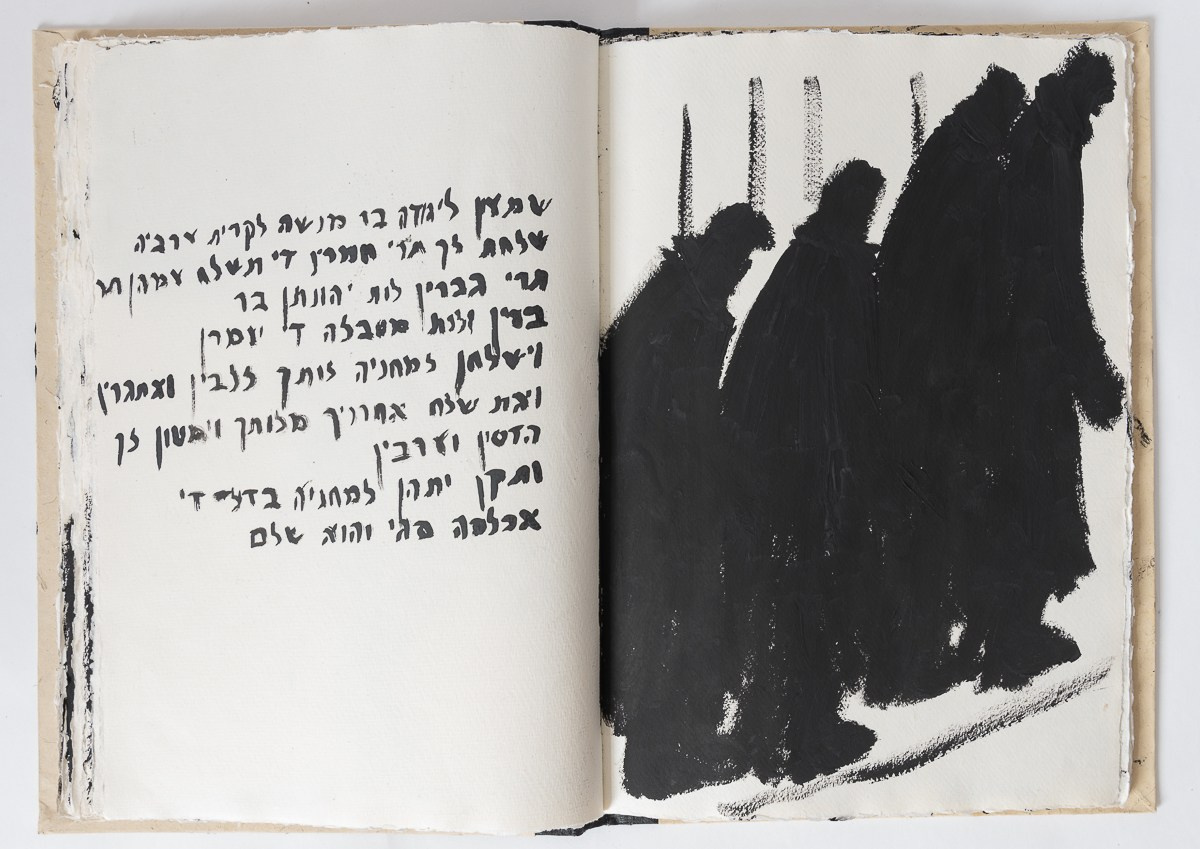 שמעון ליהודה בר מנשה לקרית ערביה
שלחת לך תרי חמרין די תשלח עמהן
תרי גברין לות יהונתן בר
בעין ולות מסבלה די יעמרן
וישלחן למחניה לותך ללבין ואתגרין
ואת שלח אחרנין מלותך וימטון לך
הדסין וערבין
ותקן יתהן למחניה בדיל די
אכלסה סגי והוא שלם